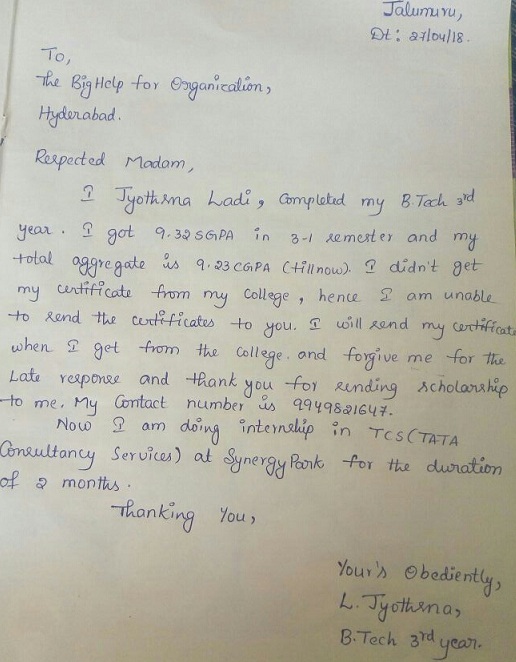 Jalumuru,
Dt: 27/04/18.
To,
The Big Help for Organization,
Hyderabad.
Respected Madam,
I Jyothsna Ladi, completed my B.Tech 3rd
year. I got 9.32 SGPA in 3-1 semester and my
total aggregate is 9.23 CGPA (till now). I didn't get
my certificate from my College, hence I am unable
to send the certificates to you. I will send my certificate
when I get from the college. and forgive me for the
Late response and thank you for sending scholarship
to me. My Contact number is 9949821647.
Now I am doing internship in TCS (TATA
Consultancy Services) at Synergy Park for the duration
of 2 months.
Thanking You,
Your's Obediently,
L. Jyothsna,
B.Tech 3rd year.